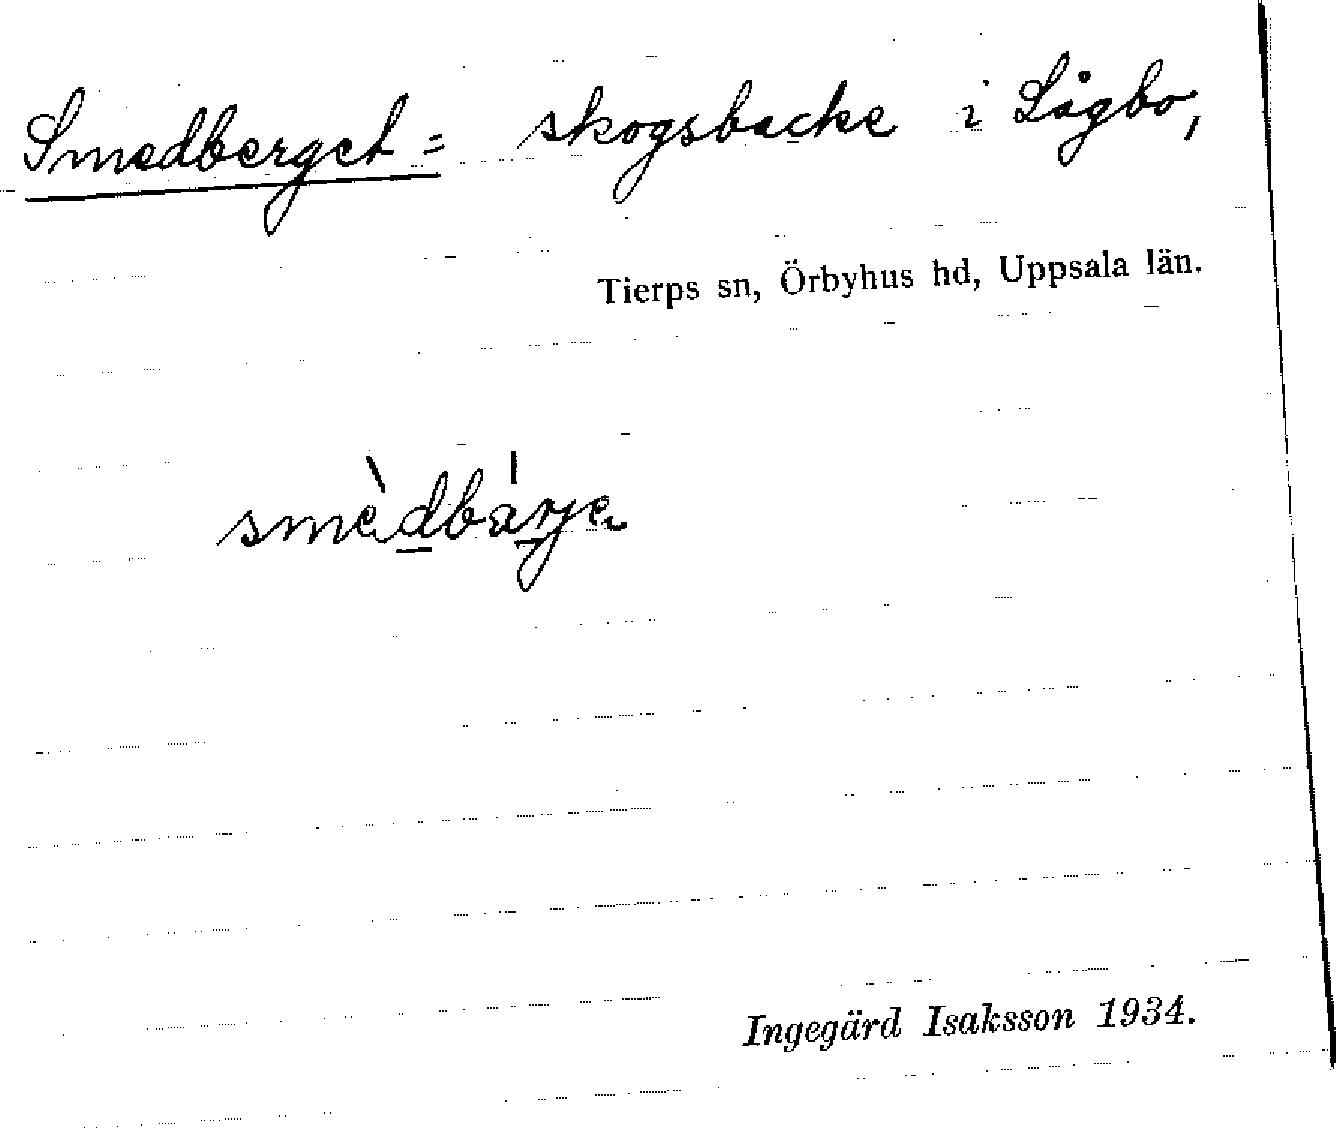 Smedberget = skogsbacke i Lågbo,
Tierps sn, Örbyhus hd, Uppsala län.
smèdbárje
Ingegärd Isaksson 1934.